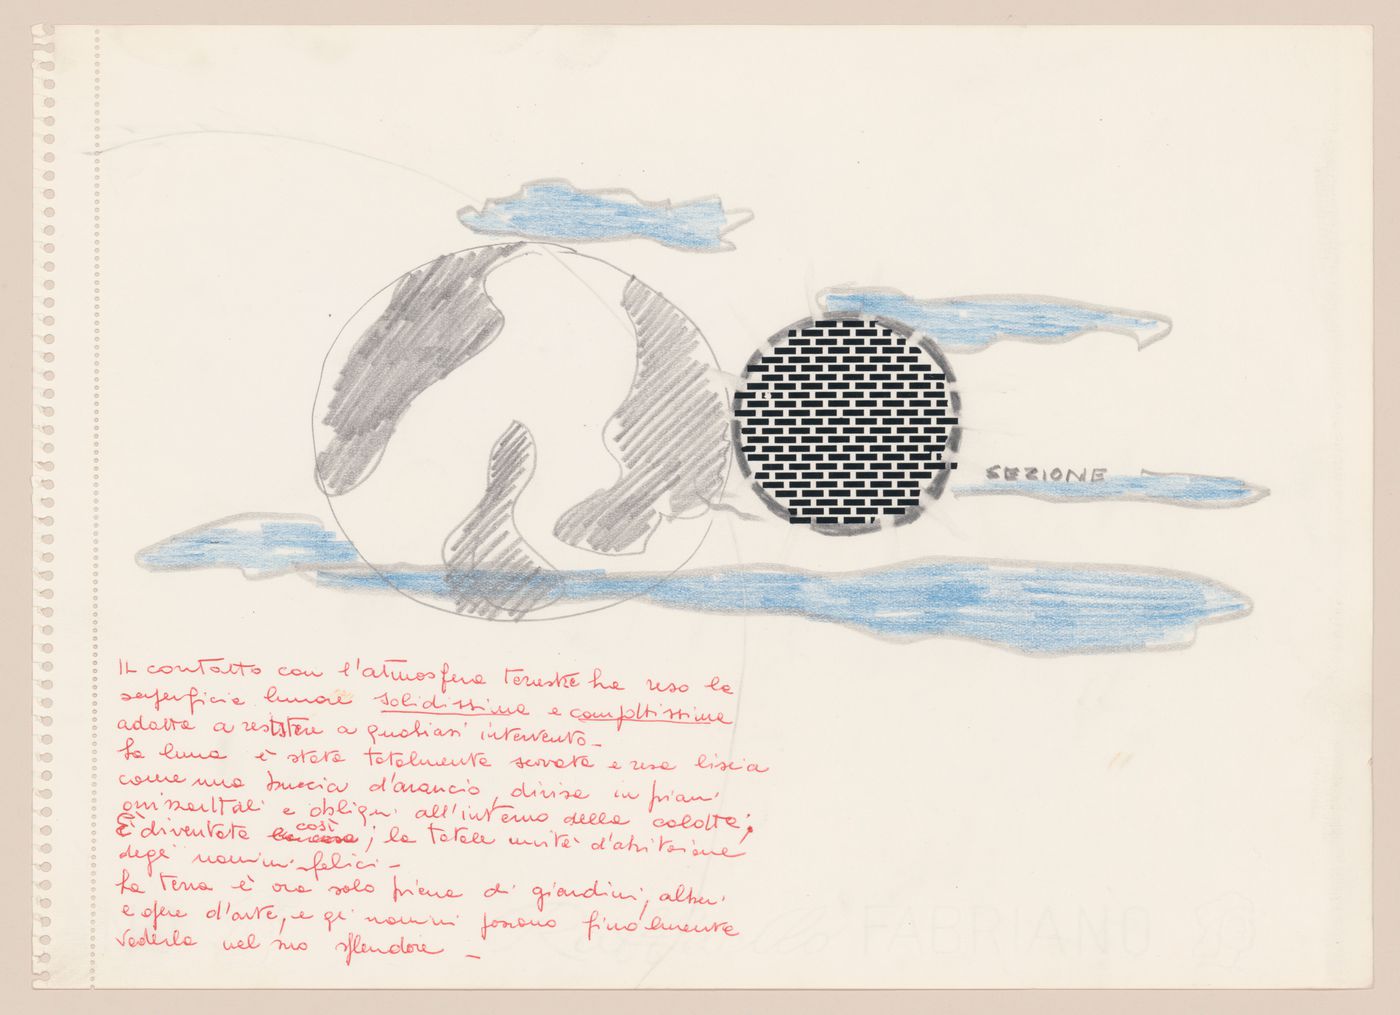 SEZIONE
Il contatto con l'atmosfera terrestre ha reso la
superficie lunare solidissima e compattissima
adatta a resistere a qualsiasi intervento_
La luna è stata totalmente scavata e resa liscia
come una buccia d'arancio, divisa in piani
orizzontali e obliqui all'interno della calotta;
È diventata così; la totale unità d'abitazione
degli uomini felici_
La terra è ora solo piena di giardini, alberi
e opere d'arte, e gli uomini possono finalmente
vederla nel suo splendore _
FABRIANO